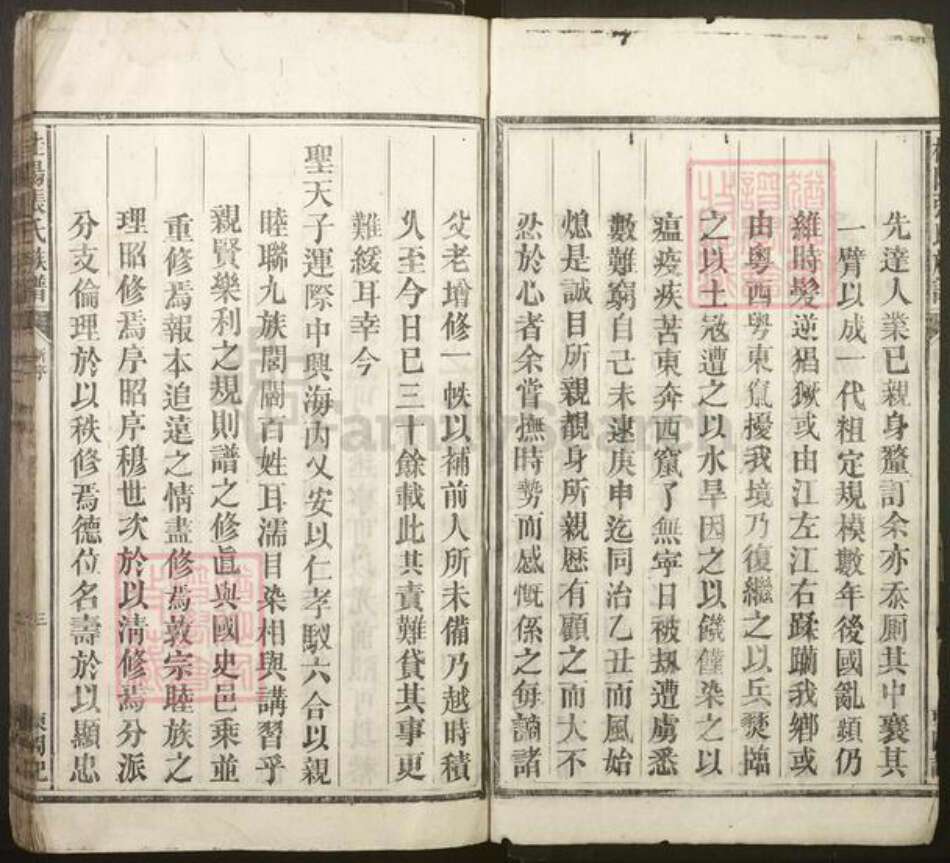 先達人業已親身釐訂余亦忝厕其中襄其
一臂以成一代粗定規模數年後國亂頻仍
維時髮逆猖獗或由江左江右蹂躪我鄉或
由粤西粤東竄擾我境乃復繼之以兵焚臨
之以土冦遭之以水旱因之以饑饉染之以
瘟疫疾苦東奔西竄了無寧日被刼遭虜悉
數難窮自己未逮庚申迄同治乙丑而風始
熄是誠目所親覩身所親歷有顧之而大不
忍於心者余嘗撫時勢而感慨係之每謪諸
父老增修一帙以補前人所未備乃越時積
久至今日已三十餘載此其責難貸其事更
難緩耳幸今
聖天子運際中興海內乂安以仁孝馭六合以親
睦聯九族閭閻百姓耳濡目染相與講習乎
親賢樂利之規則譜之修眞與國史邑乘並
重修焉報本追遠之情盡修焉敦宗睦族之
理昭修焉序昭序穆世次於以清修焉分派
分支倫理於以秩修焉德位名壽於以顯忠
張氏族譜
新序
三
FamilySearch